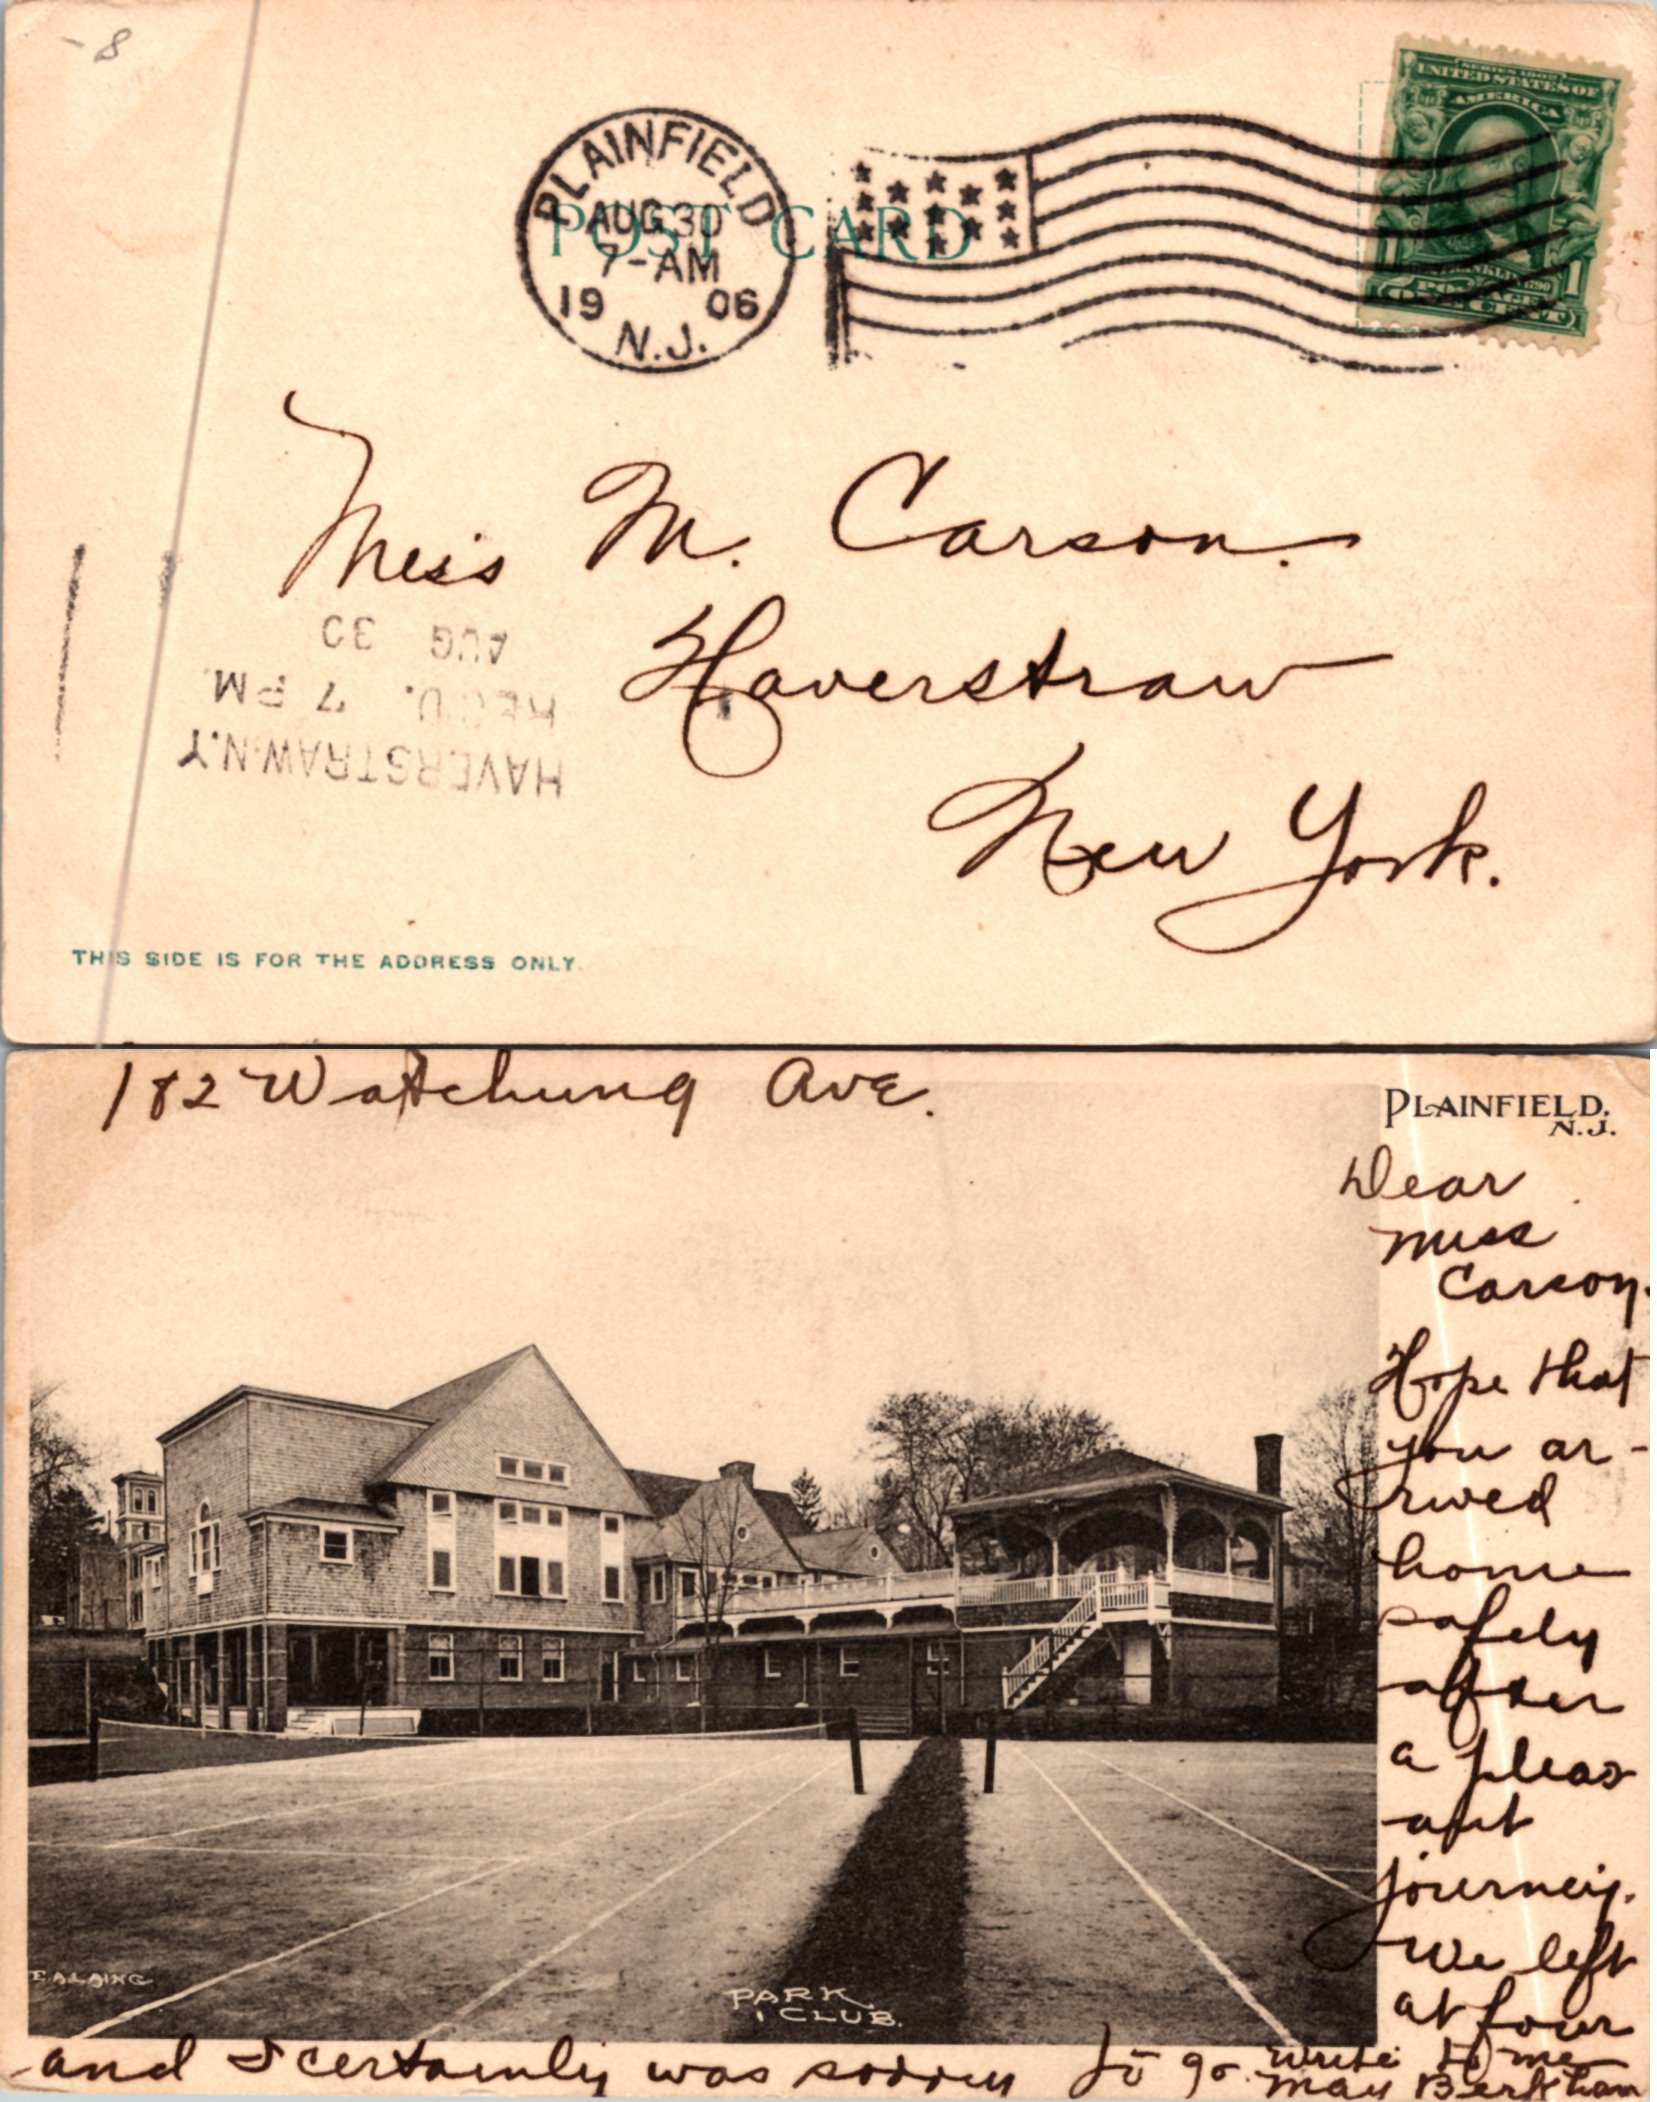 - 8
PLAINFIELD
AUG 30
7-AM
19 06
N.J.
POST CARD
SERIES 1902
UNITED STATES OF
AMERICA
1 1
POSTAGE
ONE CENT
Miss M. Carson.
Haverstraw
New York.
HAVERSTRAW, N.Y.
REC'D. 7 PM
AUG 30
THIS SIDE IS FOR THE ADDRESS ONLY.
182 Watchung Ave.
PLAINFIELD.
N.J.
Dear
Miss
Carson.
Hope that
you ar-
rived
home
safely
after
a pleas
ant
journey.
We left
at four
and I certainly was sorry to go. Write to me
May
E.A. LAING
PARK
CLUB.